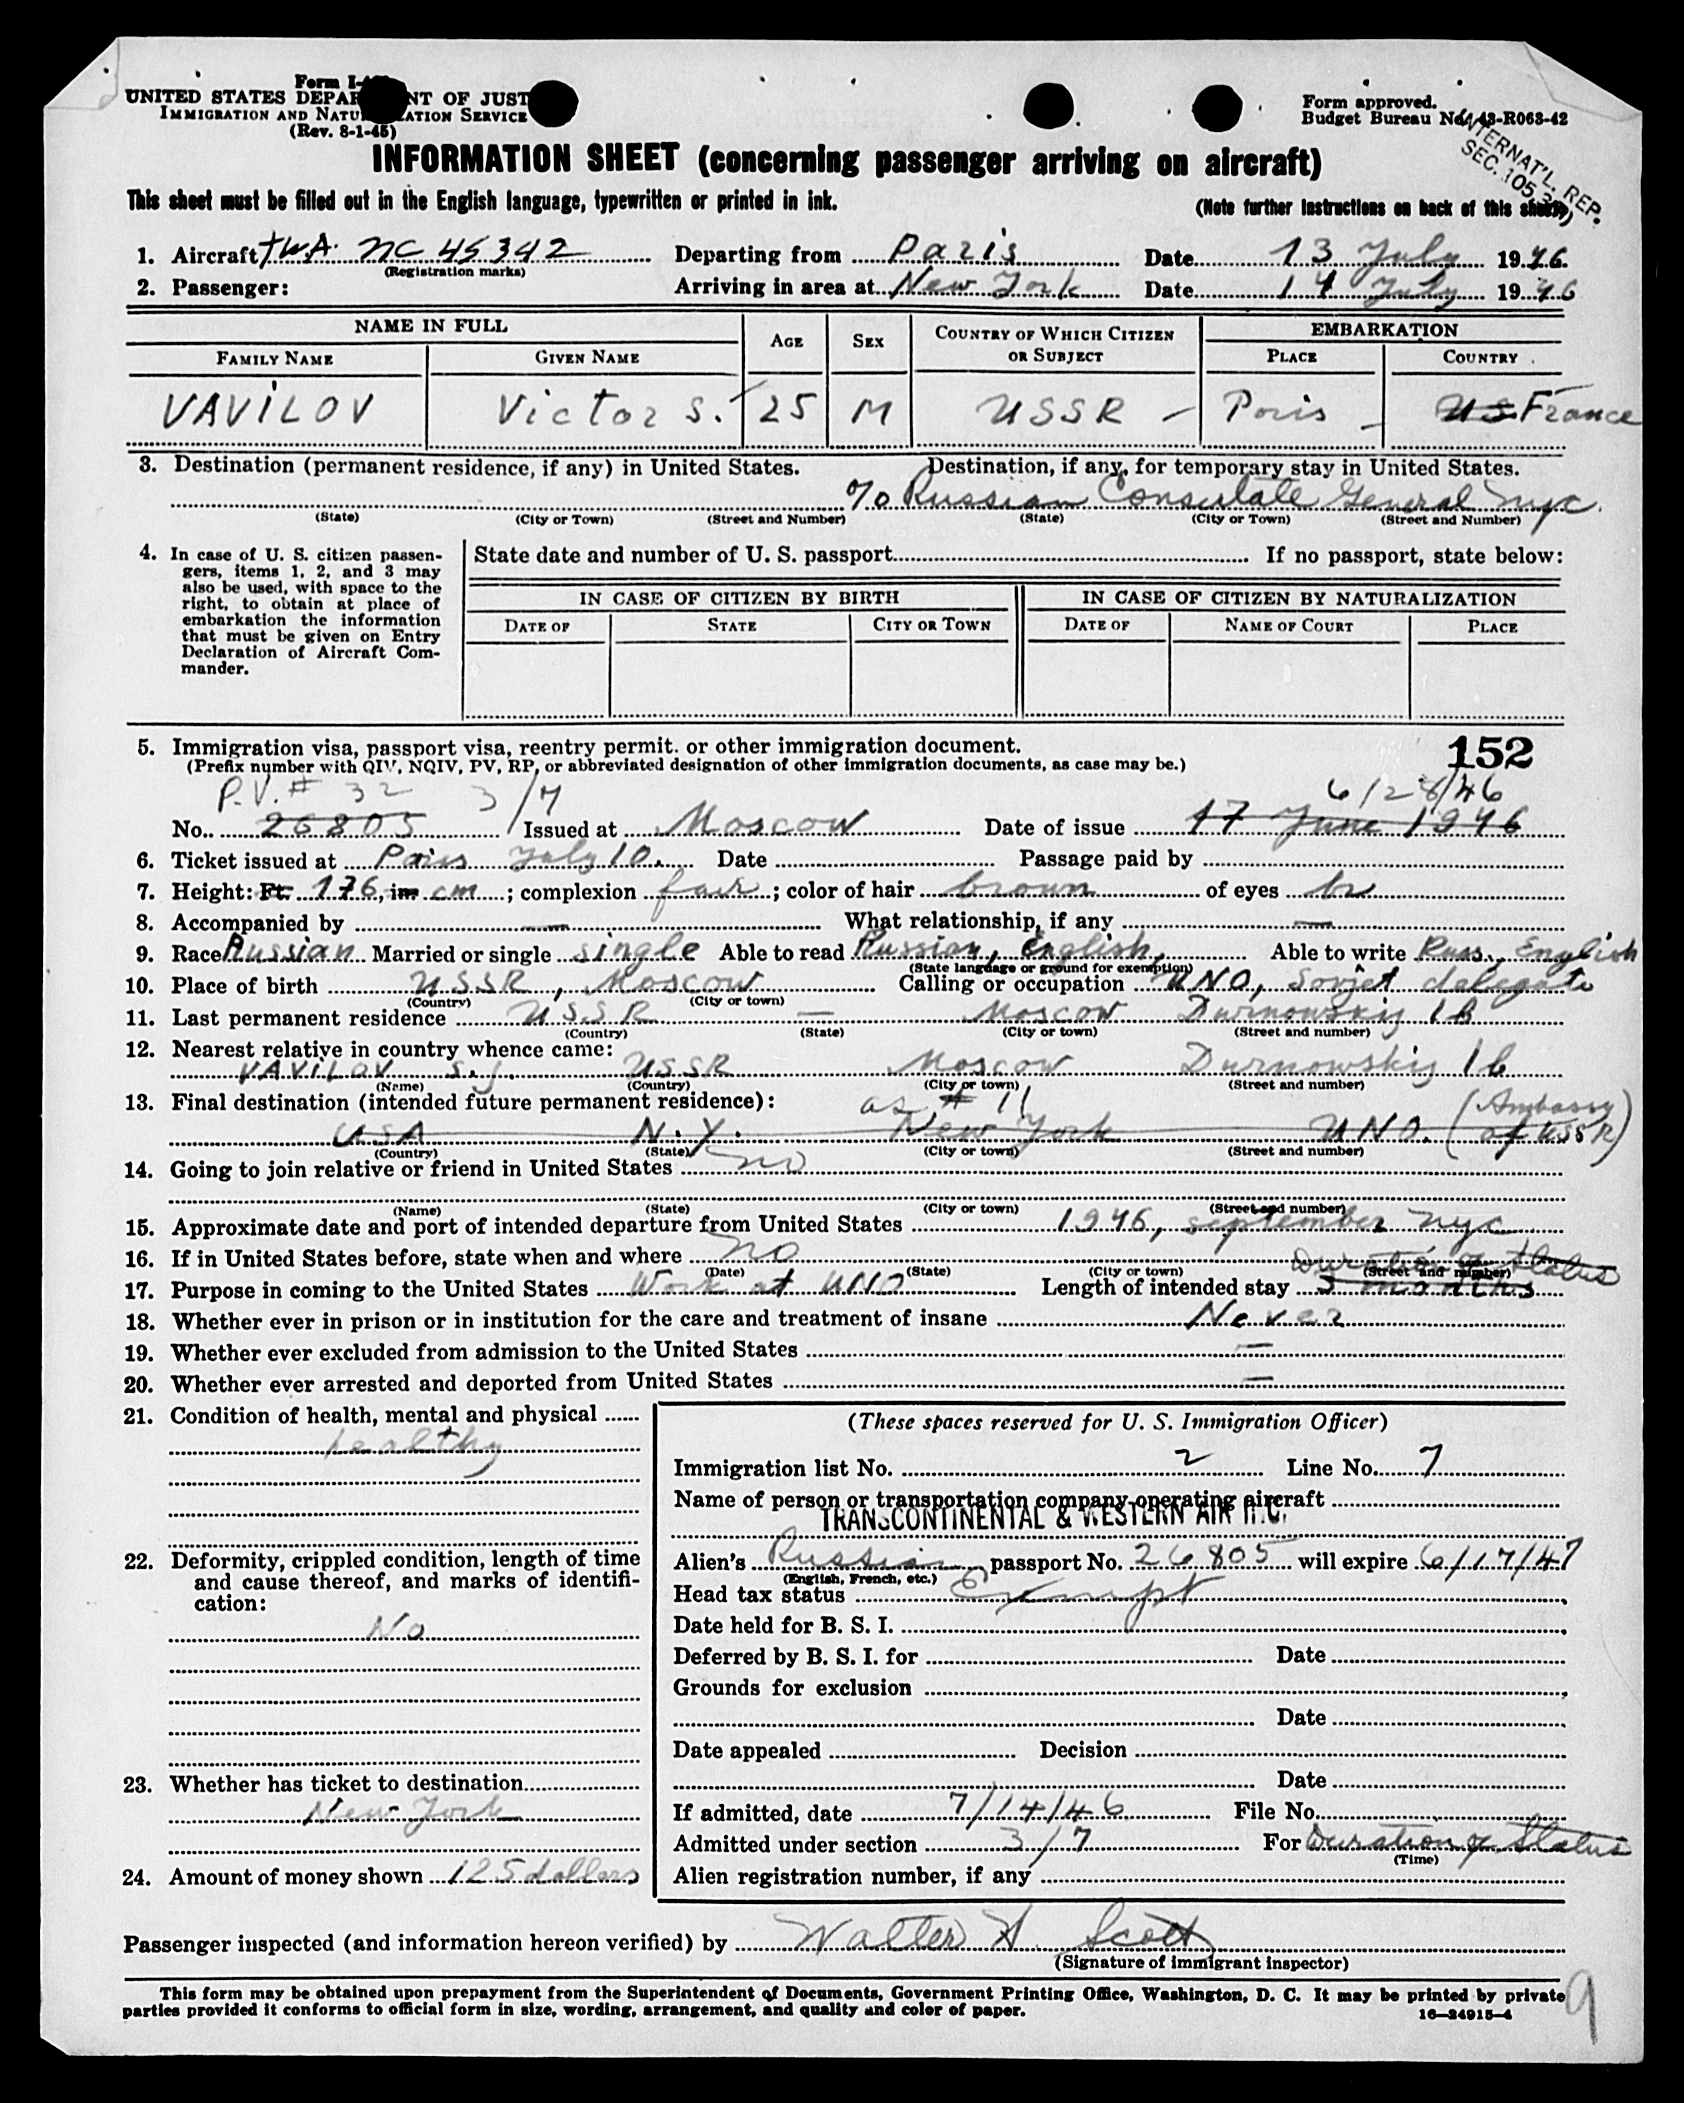 Form I-
UNITED STATES DEPAR NT OF JUST
IMMIGRATION AND NATU ATION SERVICE
(Rev. 8-1-45)
Form approved.
Budget Bureau No. 43-R063-42
INTERNAT'L. REP.
SEC. 105.3
INFORMATION SHEET (concerning passenger arriving on aircraft)
This sheet must be filled out in the English language, typewritten or printed in ink.
(Note further instructions on back of this sheet)
1. Aircraft TWA. NC 45342 Departing from Paris Date 13 July 1946.
(Registration marks)
2. Passenger: Arriving in area at New York Date 14 July 1946
NAME IN FULL AGE SEX COUNTRY OF WHICH CITIZEN OR SUBJECT EMBARKATION
FAMILY NAME GIVEN NAME PLACE COUNTRY
VAVILOV Victor S. 25 M USSR - Paris - US France
3. Destination (permanent residence, if any) in United States. Destination, if any, for temporary stay in United States.
% Russian Consulate General NYC.
(State) (City or Town) (Street and Number) (State) (City or Town) (Street and Number)
4. In case of U. S. citizen passen-
gers, items 1, 2, and 3 may
also be used, with space to the
right, to obtain at place of
embarkation the information
that must be given on Entry
Declaration of Aircraft Com-
mander.
State date and number of U. S. passport If no passport, state below:
IN CASE OF CITIZEN BY BIRTH IN CASE OF CITIZEN BY NATURALIZATION
DATE OF STATE CITY OR TOWN DATE OF NAME OF COURT PLACE
5. Immigration visa, passport visa, reentry permit, or other immigration document. 152
(Prefix number with QIV, NQIV, PV, RP, or abbreviated designation of other immigration documents, as case may be.)
P.V. # 32 3/7 6/28/46
No. 26805 Issued at Moscow Date of issue 17 June 1946
6. Ticket issued at Paris July 10. Date Passage paid by
7. Height: Ft. 176, in cm ; complexion fair ; color of hair brown of eyes br
8. Accompanied by — What relationship, if any —
9. Race Russian Married or single single Able to read Russian, English, Able to write Russ., English
(State language or ground for exemption)
10. Place of birth USSR, Moscow Calling or occupation UNO, Soviet delegate
(Country) (City or town)
11. Last permanent residence USSR — Moscow Durnowskij 1B
(Country) (State) (City or town) (Street and number)
12. Nearest relative in country whence came:
VAVILOV S. J. USSR Moscow Durnowskij 1b
(Name) (Country) (City or town) (Street and number)
13. Final destination (intended future permanent residence): as # 11
USA N.Y. New York UNO. (Embassy of USSR)
(Country) (State) (City or town) (Street and number)
14. Going to join relative or friend in United States no
(Name) (State) (City or town) (Street and number)
15. Approximate date and port of intended departure from United States 1946, september NYC
16. If in United States before, state when and where no
(Date) (State) (City or town) (Street and number)
Duration of Status
17. Purpose in coming to the United States Work at UNO Length of intended stay 3 months
18. Whether ever in prison or in institution for the care and treatment of insane Never
19. Whether ever excluded from admission to the United States —
20. Whether ever arrested and deported from United States —
21. Condition of health, mental and physical
healthy
22. Deformity, crippled condition, length of time
and cause thereof, and marks of identifi-
cation:
No
23. Whether has ticket to destination
New York
24. Amount of money shown 125 dollars
(These spaces reserved for U. S. Immigration Officer)
Immigration list No. 2 Line No. 7
Name of person or transportation company operating aircraft
TRANSCONTINENTAL & WESTERN AIR INC.
Alien's Russian passport No. 26805 will expire 6/17/47
(English, French, etc.)
Head tax status Exempt
Date held for B. S. I.
Deferred by B. S. I. for Date
Grounds for exclusion
Date
Date appealed Decision
Date
If admitted, date 7/14/46 File No.
Admitted under section 3/7 For Duration of Status
(Time)
Alien registration number, if any
Passenger inspected (and information hereon verified) by Walter A. Scott
(Signature of immigrant inspector)
This form may be obtained upon prepayment from the Superintendent of Documents, Government Printing Office, Washington, D. C. It may be printed by private
parties provided it conforms to official form in size, wording, arrangement, and quality and color of paper.
16—24915-4
9